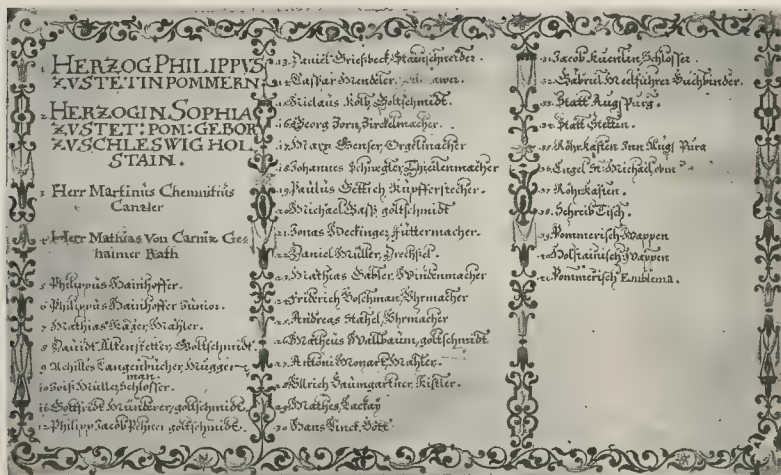 1 HERZOG PHILIPPVS
ZVSTETINPOMMERN
2 HERZOGIN SOPHIA
ZVSTET: POM: GEBOR
ZVSCHLESWIG HOL
STAIN.
3 Herr Martinus Chemnitius
Cantzler
4 Herr Mathias Von Carniz Ge⸗
haimer Rath
5 Philippus Hainhoffer.
6 Philippus Hainhoffer Junior.
7 Mathias Kager, Mahler.
8 Dauidt Altenstetter, Goltschmidt.
9 Achilles Langenbucher, Mugger⸗
man.
10 Müller, Schlosser.
11 Gottfridt Münderer, goltschmidt.
12 Philipp Jacob goltschmidt.
13 Daniel Grießbeck,
14 Caspar Mendeler,
15 Niclaus Kolb, Goltschmidt.
16 Georg Zorn, Zirckelmacher.
17 Marx Orgelmacher
18 Johannes Schwegler,
19 Paulus Göttich Kupfferstecher.
20 Michael Gaß goltschmidt
21 Jonas Meckinger, Futtermacher.
22 Daniel Müller, Drechsel.
23 Mathias Gabler, Windenmacher
24 Friderich Boschman, Vhrmacher
25 Andreas Stahel, Vhrmacher
26 Matheus Wallbaum, goltschmidt
27 Antoni Mozart, Mahler.
28 Vllrich Baumgartner, Kistler.
29 Mathes, Lackay
30 Hans
31 Jacob Kuenlin, Schlosser.
32 Gabriel Meelführer Buchbinder.
33 Statt Augspurg.
34 Statt Stettin.
35 Röhrkasten Inn Augspurg
36 Engel St: Michael,
37 Röhrkasten.
38 Schreib Tisch.
39 Pommerisch Wappen
40 Holstainisch Wappen
41 Pommerisch Emblema.